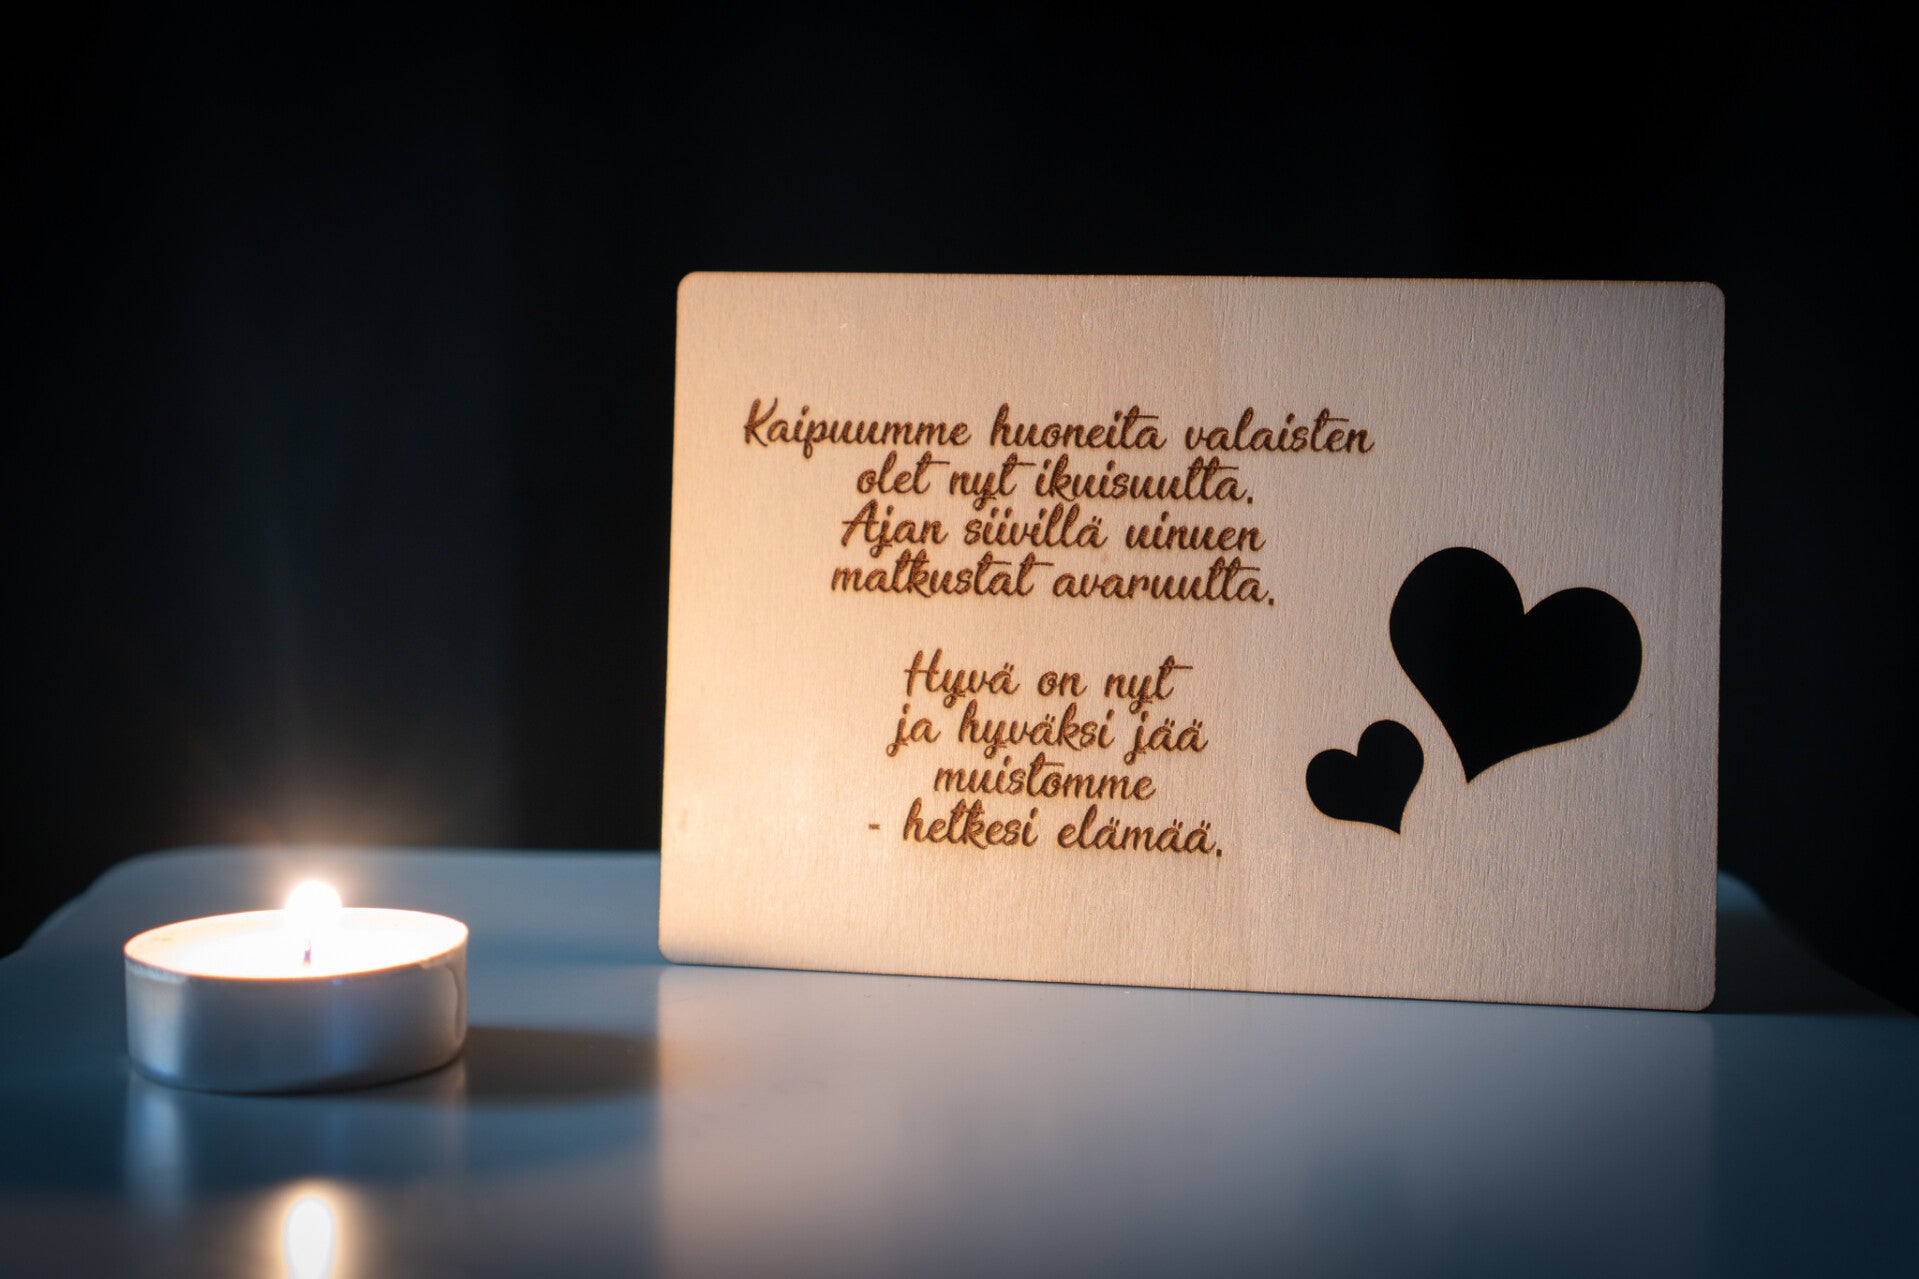 Kaipuumme huoneita valaisten
olet nyt ikuisuutta.
Ajan siivillä uinuen
matkustat avaruutta.
Hyvä on nyt
ja hyväksi jää
muistomme
- hetkesi elämää.